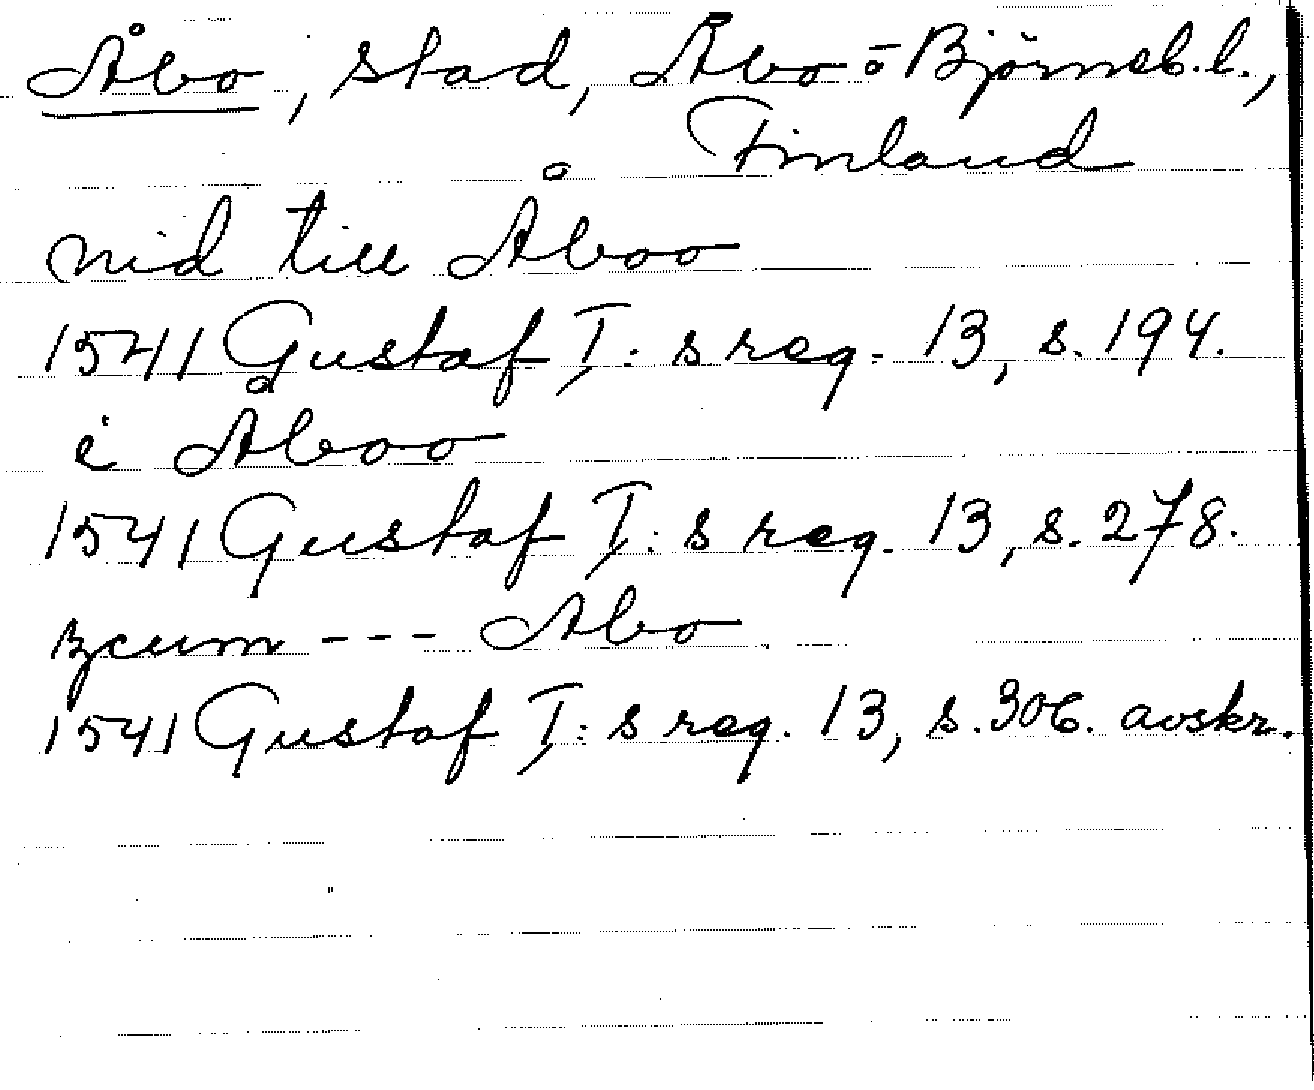 Åbo, stad, Åbo o Björneb. l.,
Finland
nid till Åboo
1541 Gustaf I:s reg. 13, s. 194.
i Åboo
1541 Gustaf I:s reg. 13, s. 278.
zcum --- Abo
1541 Gustaf I:s reg. 13, s. 306. avskr.